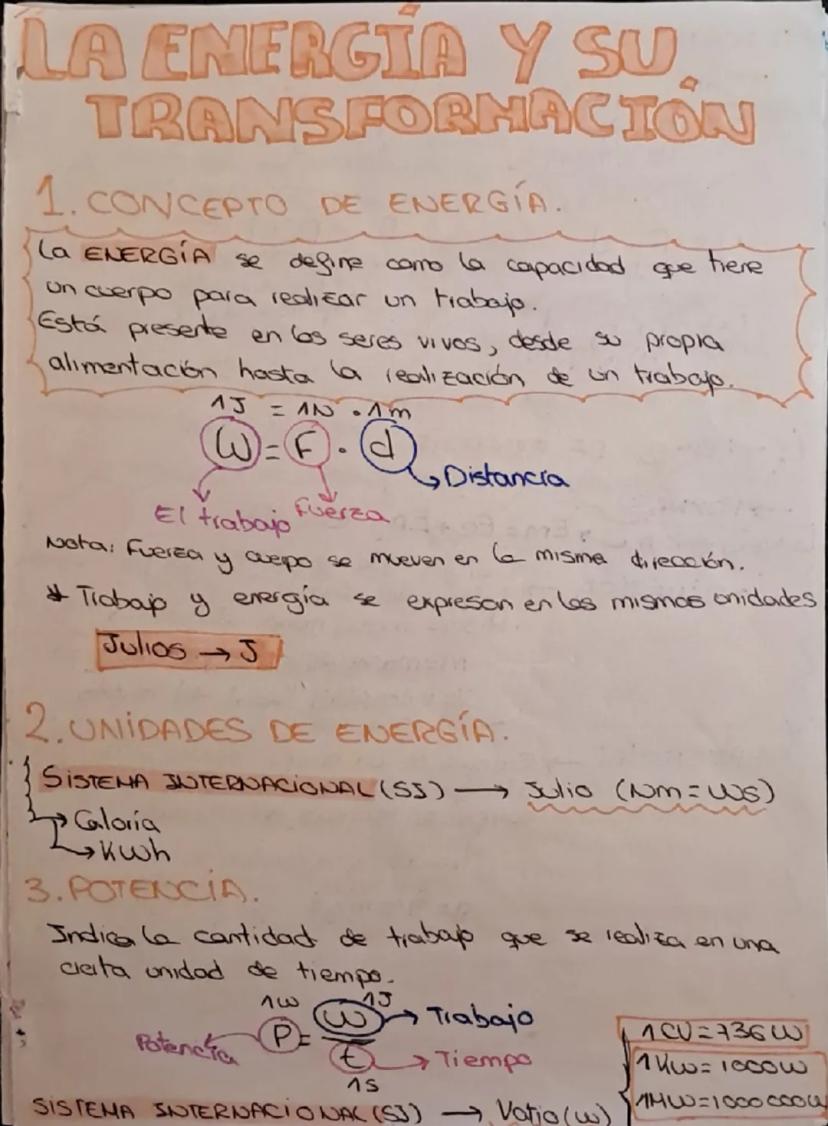 LA ENERGÍA Y SU
TRANSFORMACIÓN
1. CONCEPTO DE ENERGÍA.
La ENERGÍA se define como la capacidad que tiene
un cuerpo para realizar un trabajo.
Está presente en los seres vivos, desde su propia
alimentación hasta la realización de un trabajo.
1J = 1N · 1m
W = F · d
Distancia
El trabajo Fuerza
Nota: Fuerza y cuerpo se mueven en la misma dirección.
* Trabajo y energía se expresan en las mismas unidades
Julios → J
2. UNIDADES DE ENERGÍA.
SISTEMA INTERNACIONAL (SI) → Julio (Nm = Ws)
→ Caloría
→ KWh
3. POTENCIA.
Indica la cantidad de trabajo que se realiza en una
cierta unidad de tiempo.
1W 1J
Potencia P = W / t → Trabajo
→ Tiempo
1s
1CV = 736W
1KW = 1000W
1MW = 1000000W
SISTEMA INTERNACIONAL (SI) → Vatio (W)